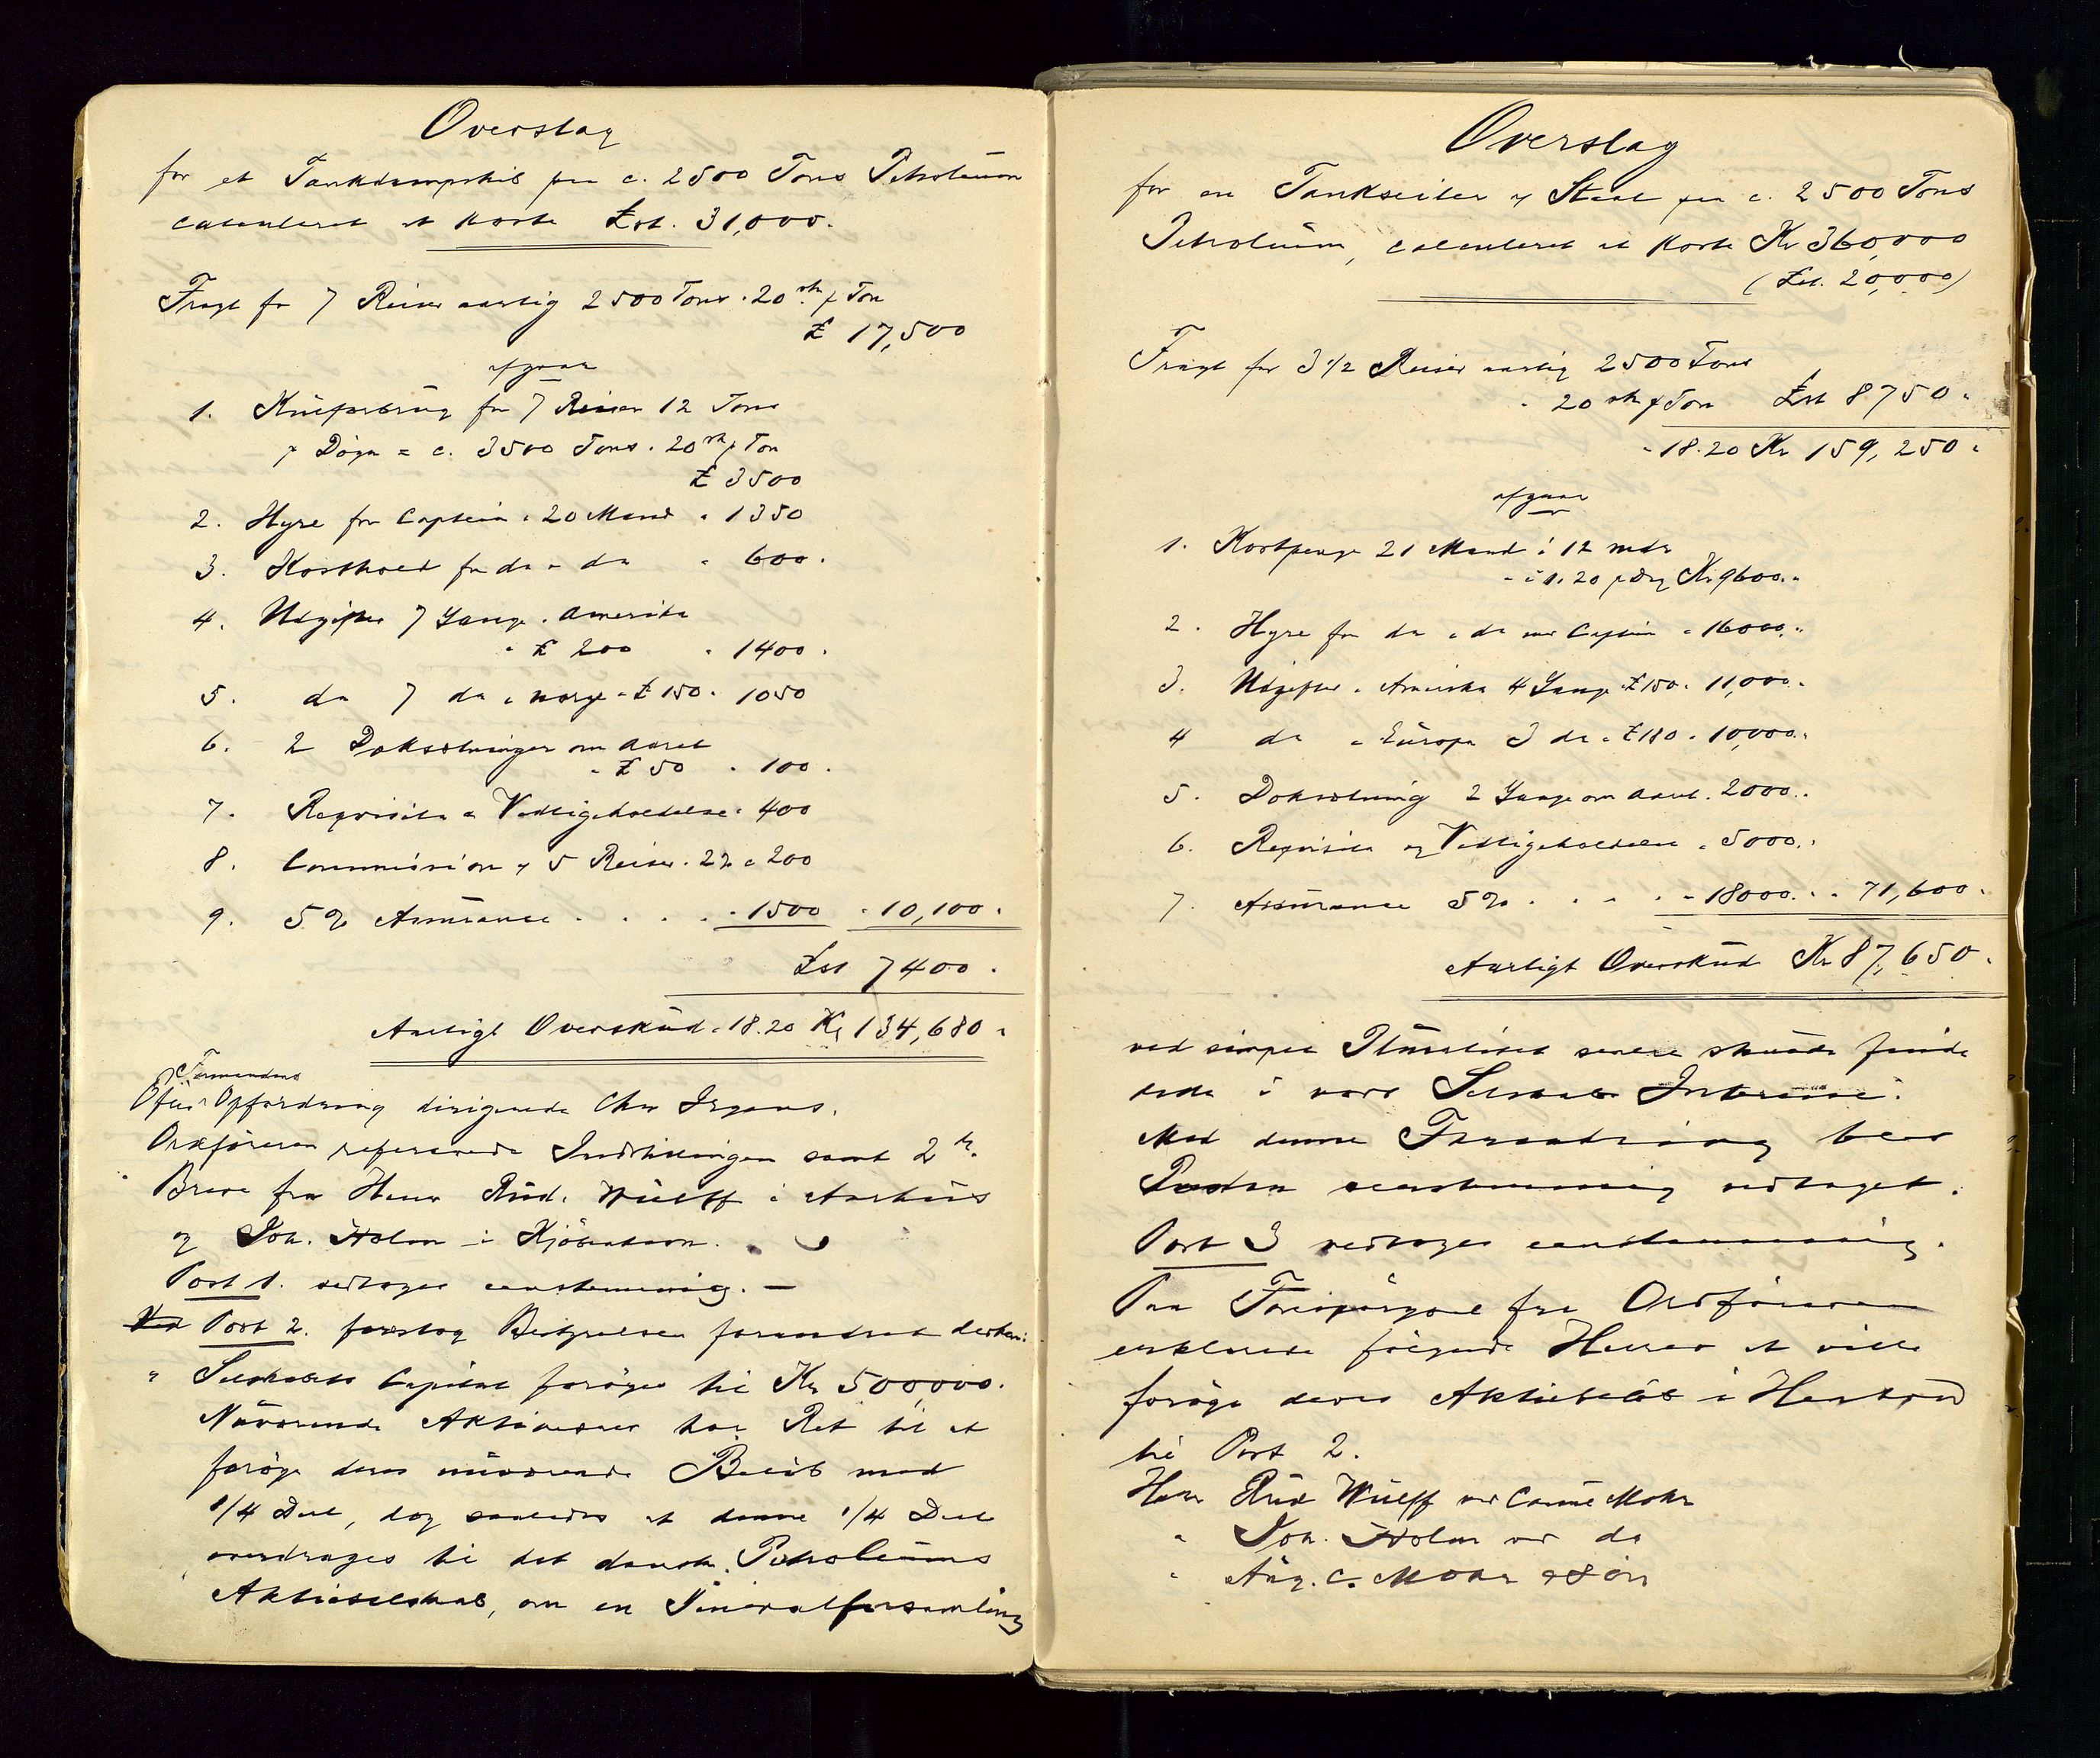 Overslag
for et Tankdampskib paa c. 2500 Tons Petroleum
calculeret at koste £st. 31,000.
Fragt for 7 Reiser aarlig 2500 Tons à 20 sh p Ton
£ 17,500
afgaar
1. Kulforbrug for 7 Reiser 12 Tons
p Døgn = c. 3500 Tons à 20 sh p Ton
£ 3500
2. Hyre for Captein & 20 Mand " 1350
3. Kosthold for do & do " 600.
4. Udgifter 7 Gange i Amerika
à £ 200 " 1400.
5. do 7 do i Norge à £ 150 " 1050
6. 2 Doksætninger om Aaret
à £ 50 " 100.
7. Requisita & Vedligeholdelse " 400
8. Commission af 5 Reiser à 2% " 200
9. 5% Assurance . . . . " 1500 " 10,100.
£st 7400.
Aarligt Overskud à 18.20 Kr 134,680.
Formandens
Efter Opfordring dirigerede Chr Irgens.
Ordføreren refererede Indstillingen samt 2de
Breve fra Herrer Rud. Wulff i Aarhus
og Joh. Holm i Kjøbenhavn.
Post 1. vedtoges eenstemmig. —
Ved Post 2. foreslog Bestyrelsen forandret derhen:
" Selskabets Capital forøges til Kr 500,000.
Nuværende Aktionærer har Ret til at
forøge deres nuværende Beløb med
1/4 Deel, dog saaledes at denne 1/4 Deel
overdrages til det danske Petroleums
Aktieselskab, om en Generalforsamling
Overslag
for en Tankseiler af Staal paa c. 2500 Tons
Petroleum, calculeret at koste Kr 360,000
(£st. 20,000)
Fragt for 3 1/2 Reiser aarlig 2500 Tons
à 20 sh p Ton £st 8750.
à 18.20 Kr 159,250.
afgaar
1. Kostpenge 21 Mand i 12 mdr
à 1.20 p Dag Kr 9600.
2. Hyre for do & do med Captein " 16000.
3. Udgifter i Amerika 4 Gange £ 150 " 11,000.
4 do i Europa 3 do à £ 180 " 10,000.
5. Doksætning 2 Gange om Aaret " 2000.
6. Requisita og Vedligeholdelse " 5000.
7. Assurance 5% . . . . " 18000. " 71,600.
Aarligt Overskud Kr 87,650.
ved simpel Pluralitet senere skulde finde
dette i vort Selskabs Interesse.
Med denne Forandring blev
Posten eenstemmig vedtaget.
Post 3 vedtoges eenstemmig.
Paa Forespørgsel fra Ordføreren
erklærede følgende Herrer at ville
forøge deres Aktiebeløb i Henhold
til Post 2.
Herr Rud Wulff ved Conne Mohr
" Joh. Holm ved do
" Aug. C. Mohr & Søn